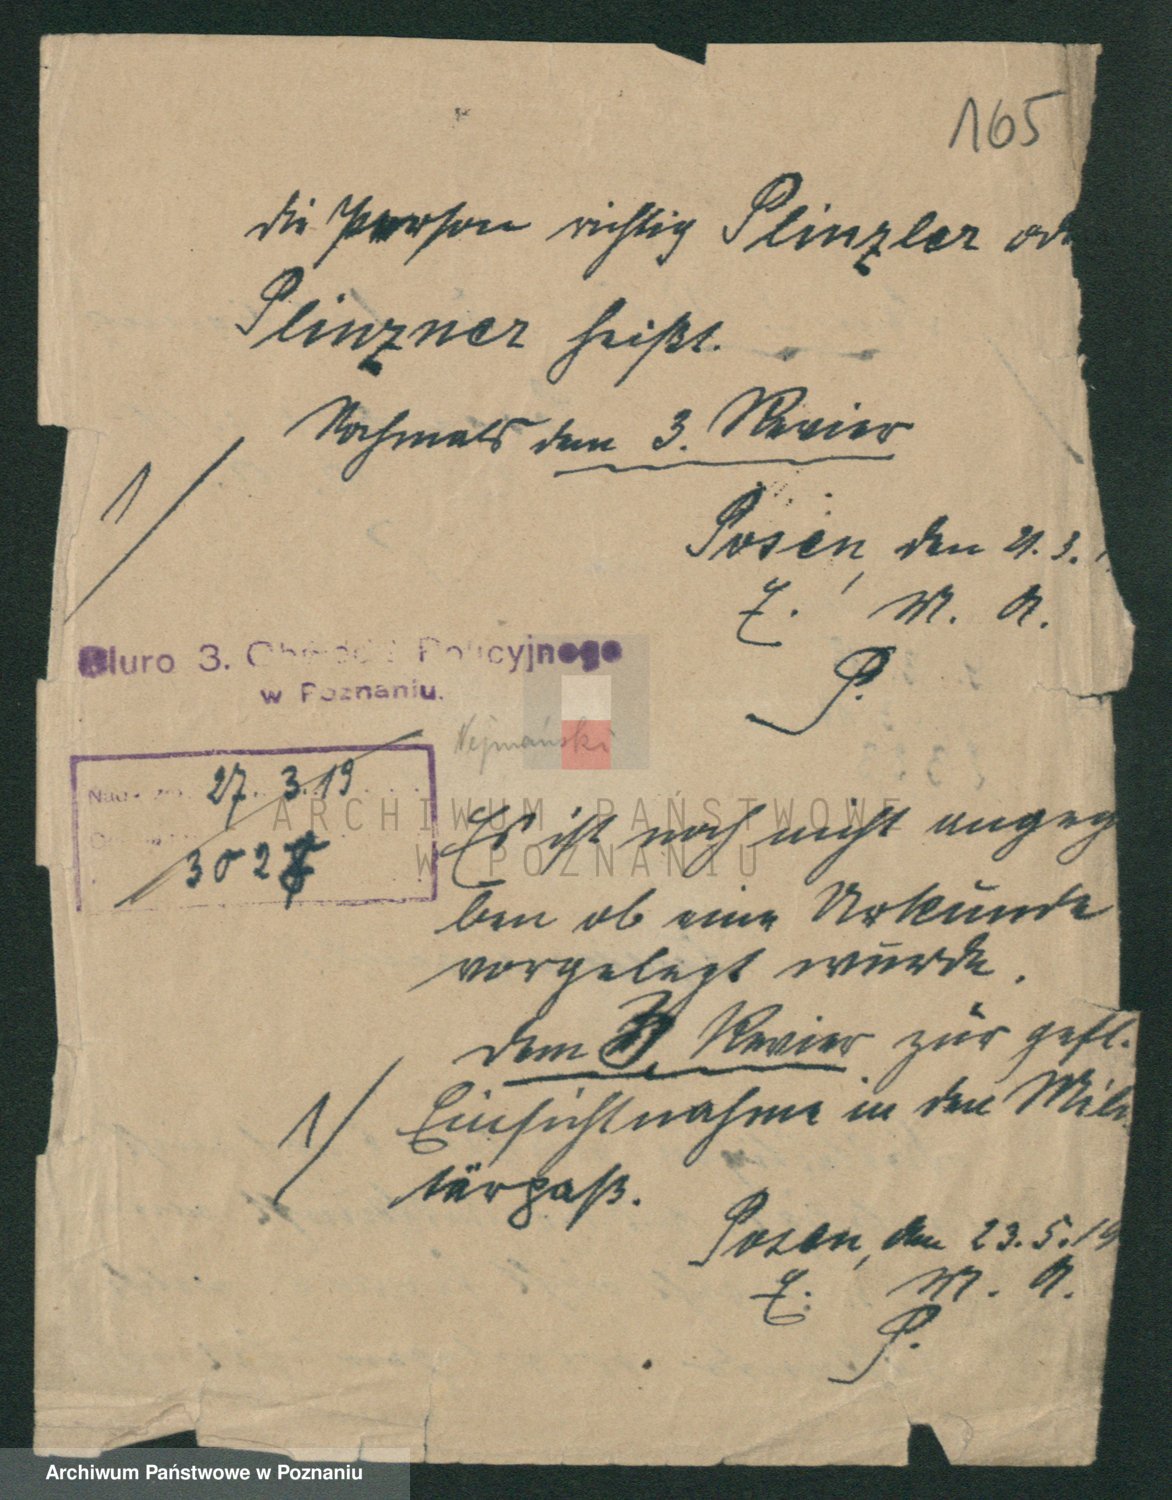 165
die Person richtig Plinzler od
Plinzner heißt.
Nochmals dem 3. Revier
1/
Posen, den 21. 3. 1
E. M. A.
P.
Biuro 3. Obwodu Policyjnego
w Poznaniu.
Nejmański
27. 3. 19
302
ARCHIWUM PAŃSTWOWE
W POZNANIU
Es ist noch nicht angege
ben ob eine Urkunde
vorgelegt wurde.
dem 3. Revier zur gefl.
1/
Einsichtnahme in den Mili
tärpaß.
Posen, den 23. 5. 19
E. M. A.
P.
Archiwum Państwowe w Poznaniu